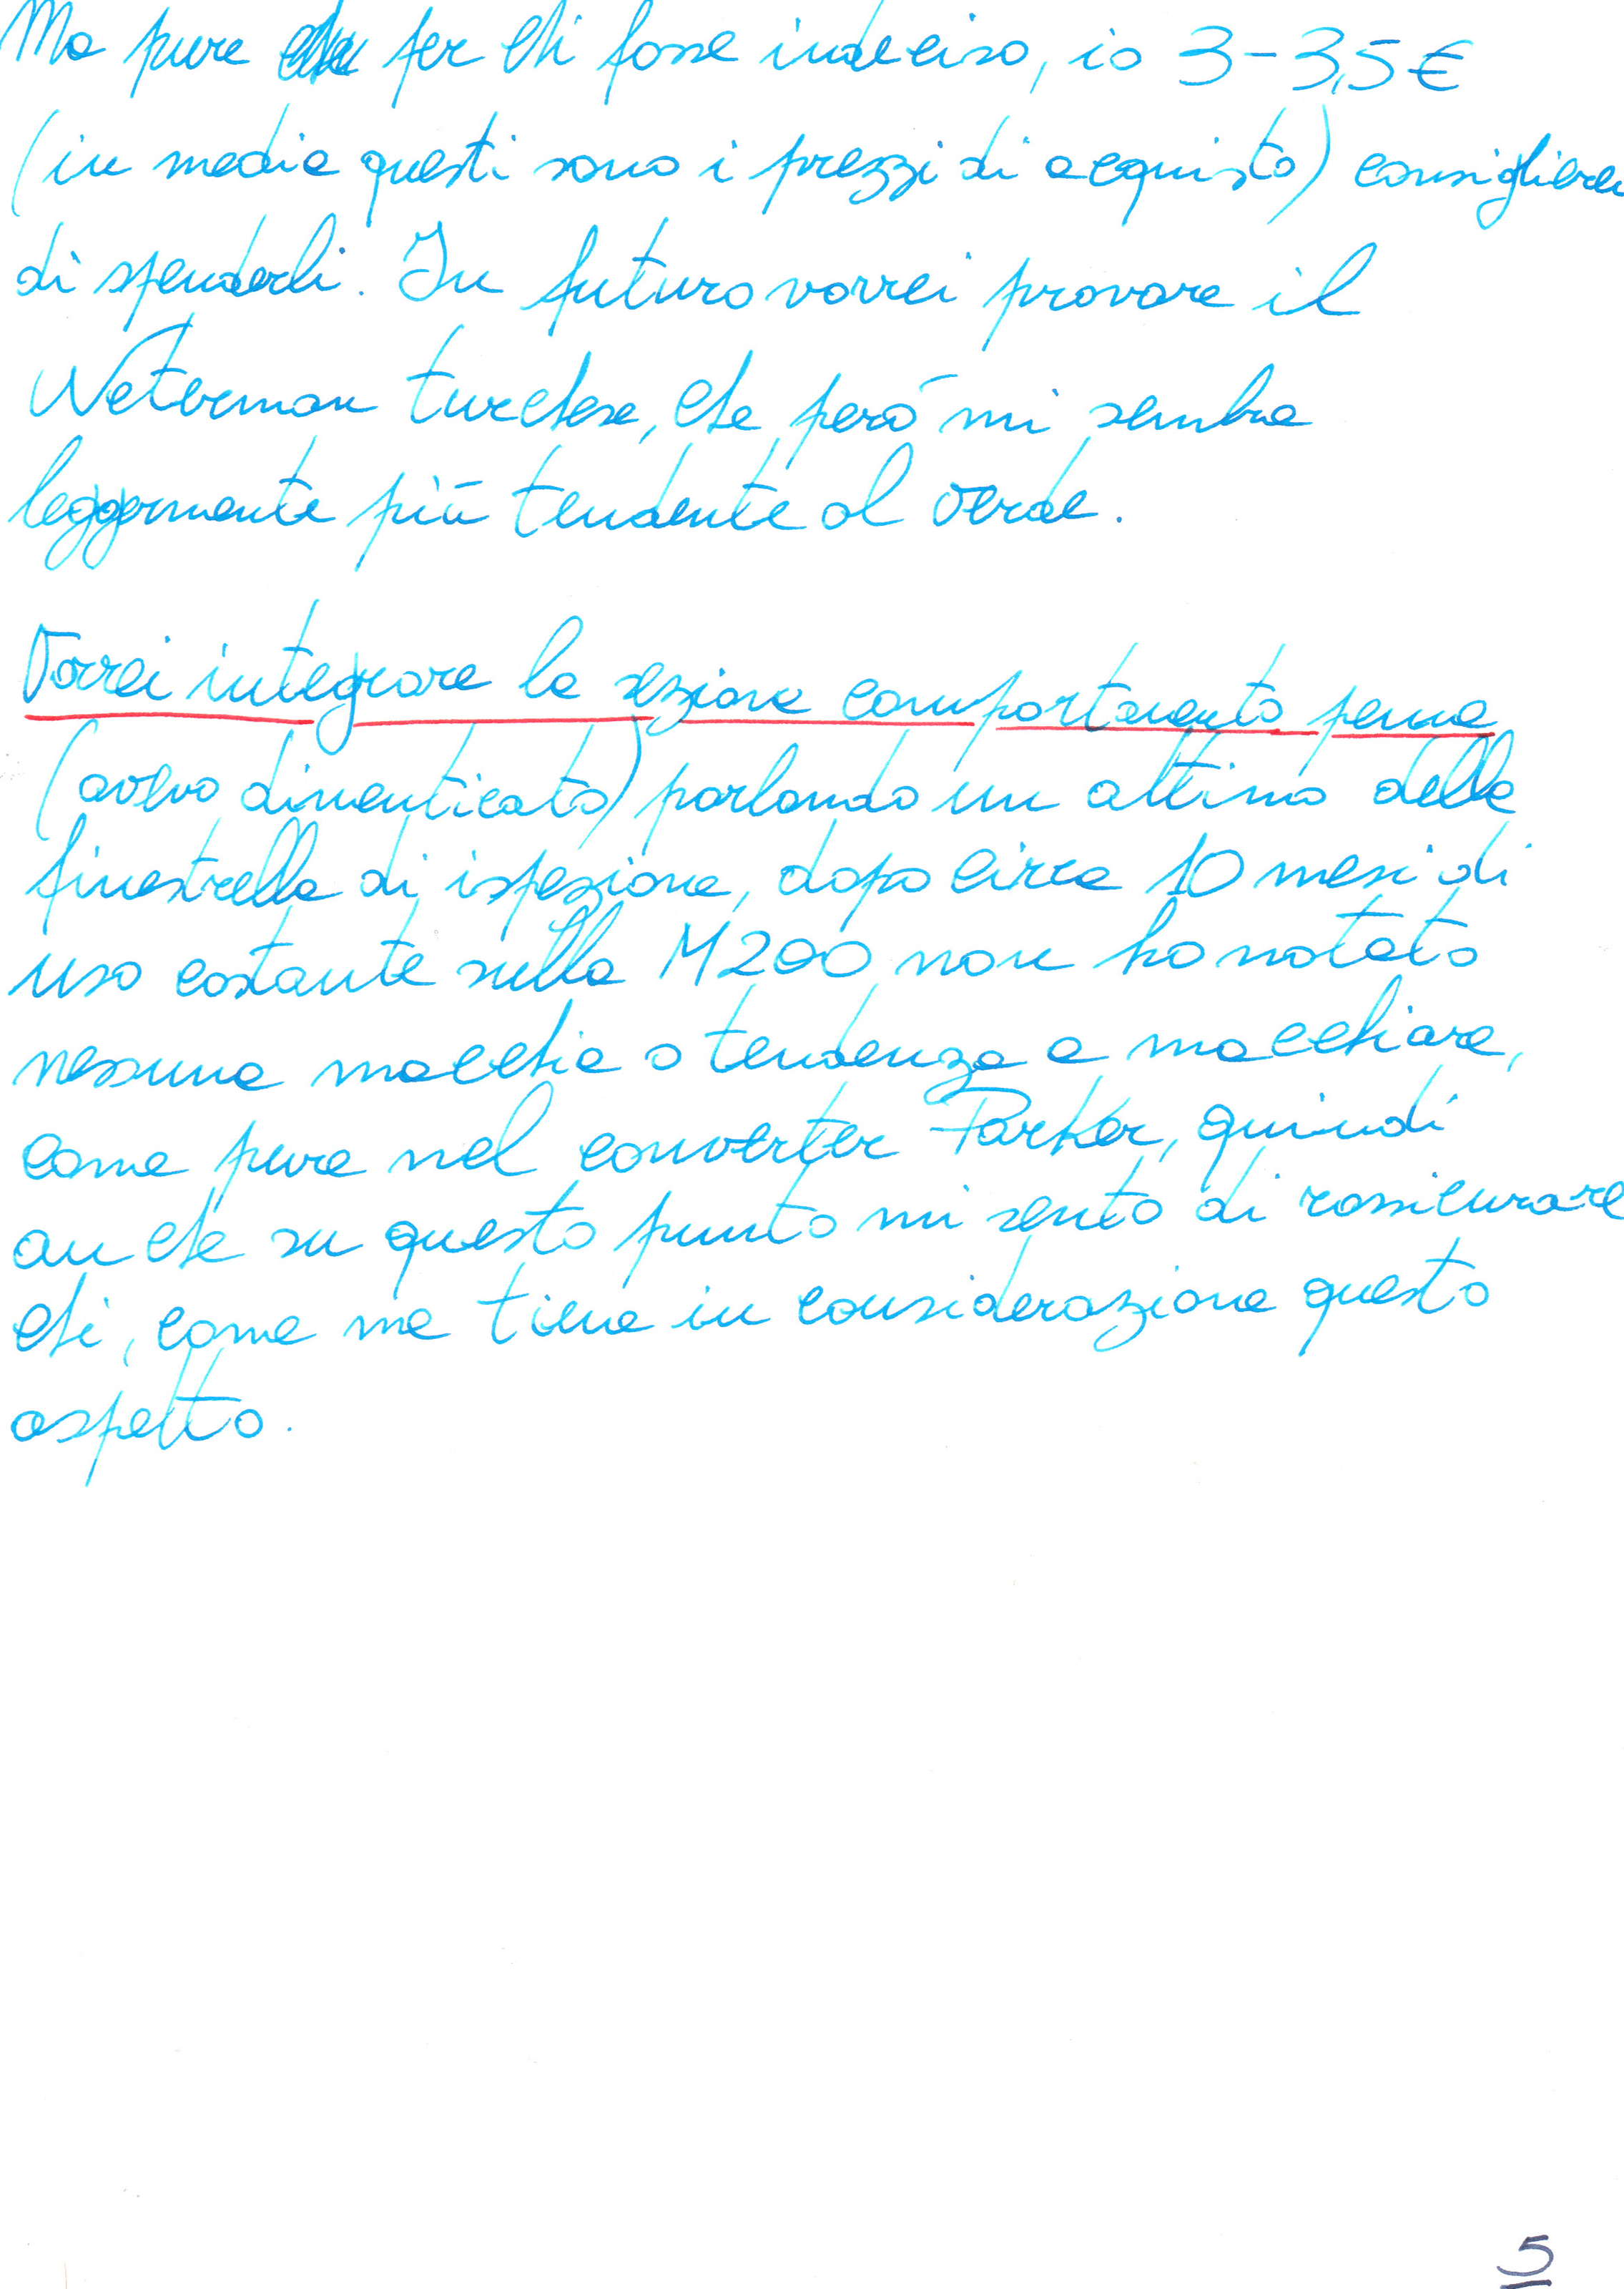 Ma pure per chi fosse indeciso, io 3-3,5€
(in media questi sono i prezzi di acquisto) consiglierei
di spenderli. In futuro vorrei provare il
Waterman turchese, che però mi sembra
leggermente più tendente al verde.
Vorrei integrare la sezione comportamento penna
(avevo dimenticato) parlando un attimo della
finestrella di ispezione, dopo circa 10 mesi di
uso costante sulla M200 non ho notato
nessuna macchia o tendenza a macchiare,
come pure nel converter Parker, quindi
anche su questo punto mi sento di rassicurare
chi, come me tiene in considerazione questo
aspetto.
5